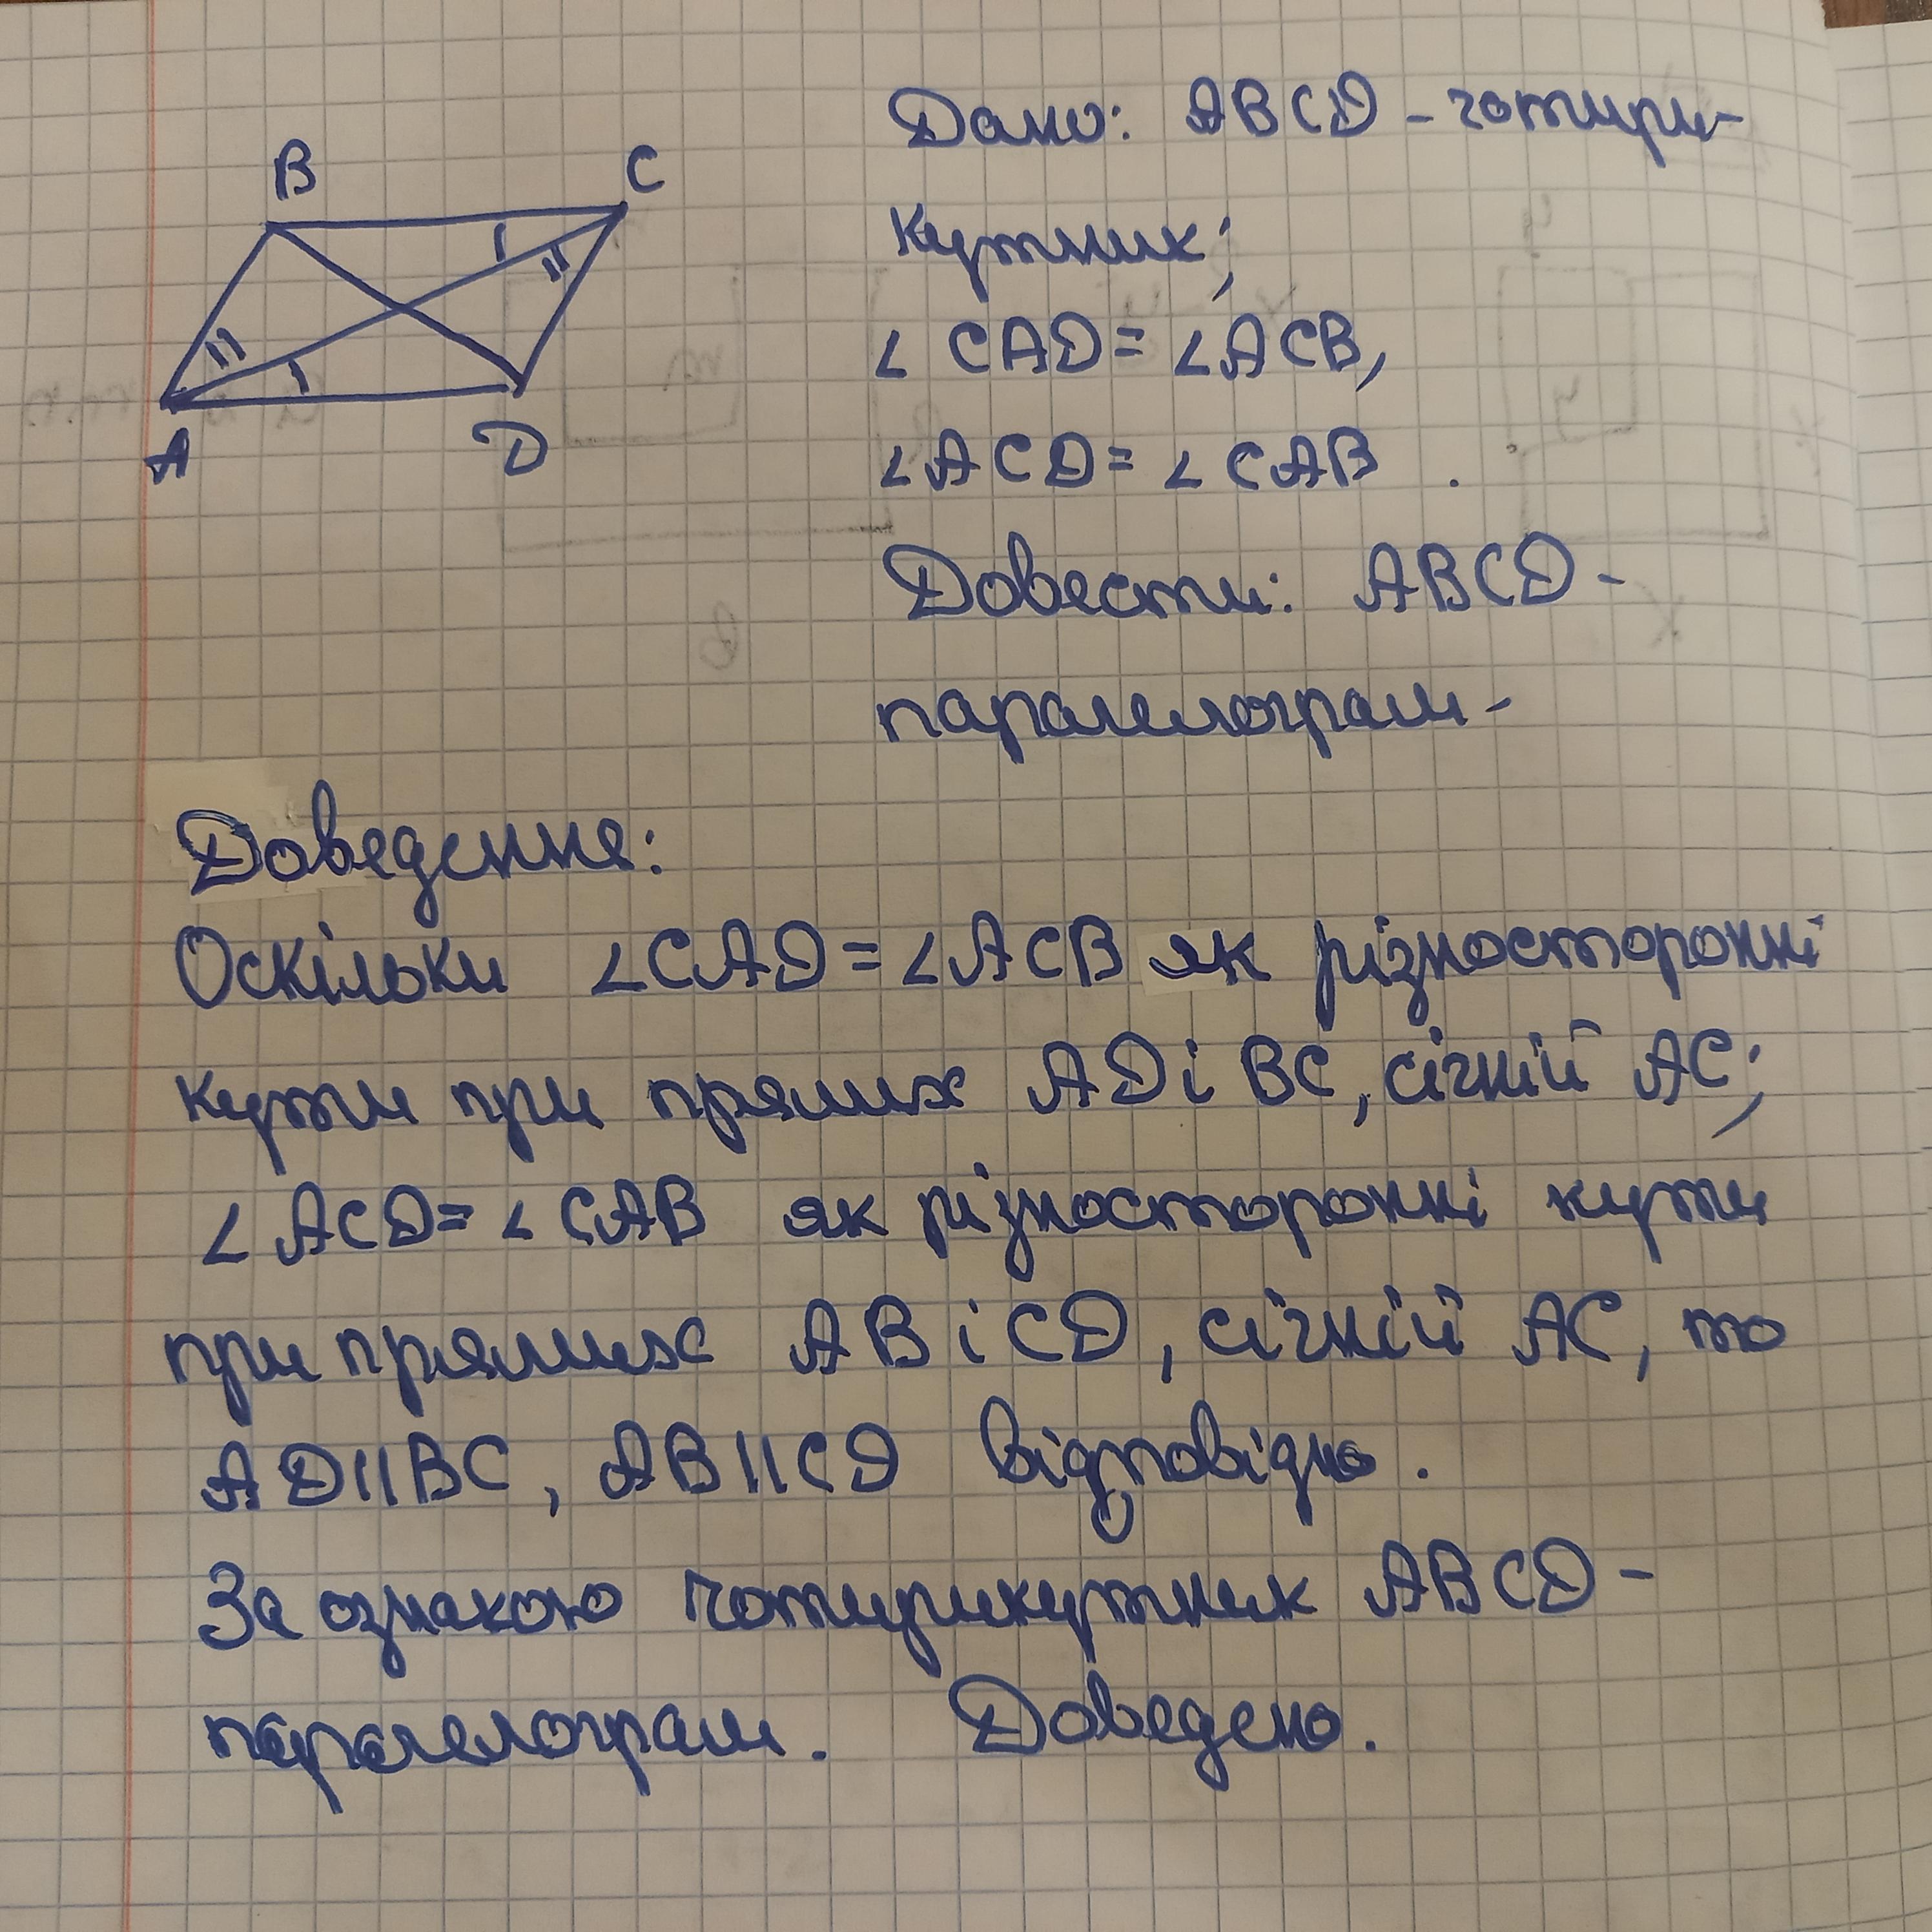 B
C
A
D
Дано: ABCD - чотири-
кутник;
∠CAD = ∠ACB,
∠ACD = ∠CAB .
Довести: ABCD -
паралелограм.
Доведення:
Оскільки ∠CAD = ∠ACB як різносторонні
кути при прямих AD і BC, січній AC;
∠ACD = ∠CAB як різносторонні кути
при прямих AB і CD, січній AC, то
AD||BC, AB||CD відповідно.
За ознакою чотирикутник ABCD -
паралелограм. Доведено.